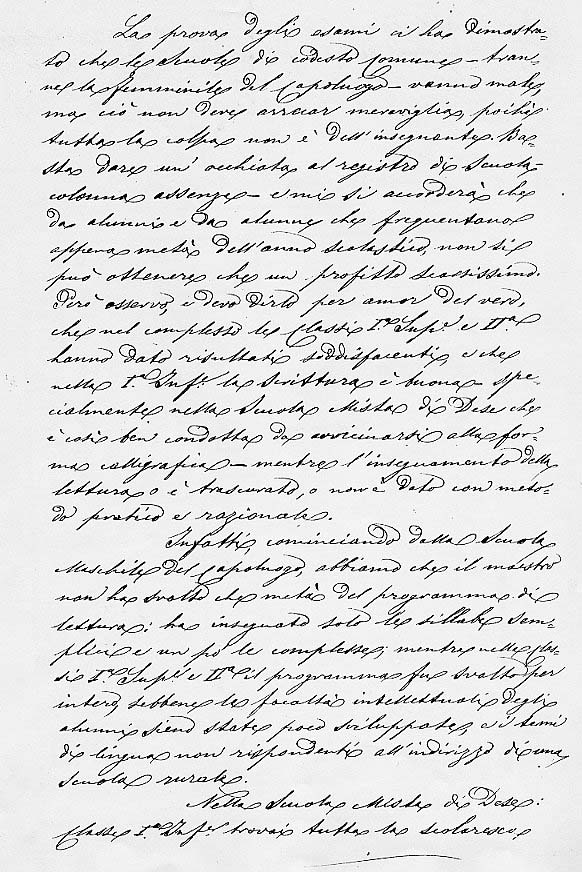 La prova degli esami ci ha dimostra-
to che le Scuole di codesto Comune – tran-
ne la femminile del Capoluogo – vanno male,
ma ciò non deve arrecar meraviglia, poichè
tutta la colpa non è dell'insegnante. Ba-
sta dare un'occhiata al registro di Scuola –
colonna assenze – e mi si accorderà che
da alunni e da alunne che frequentano
appena metà dell'anno scolastico, non si
può ottenere che un profitto scarsissimo.
Però osservo, e devo dirlo per amor del vero,
che nel complesso le Classi Iª Supᵉ e IIª
hanno dato risultati soddisfacenti, e che
nella Iª Infᵉ la scrittura è buona – spe-
cialmente nella Scuola Mista di Dese che
è così ben condotta da avvicinarsi alla for-
ma calligrafica – mentre l'insegnamento della
lettura o è trascurato, o non è dato con meto-
do pratico e razionale.
Infatti, cominciando dalla Scuola
Maschile del Capoluogo, abbiamo che il maestro
non ha svolto che metà del programma di
lettura: ha insegnato solo le sillabe sem-
plici e un pò le complesse; mentre nelle Clas-
si Iª Supᵉ e IIª il programma fu svolto per
intero, sebbene le facoltà intellettuali degli
alunni sieno state poco sviluppate, e i temi
di lingua non rispondenti all'indirizzo di una
scuola rurale.
Nella Scuola Mista di Dese:
Classe Iª Infᵉ trovai tutta la scolaresca